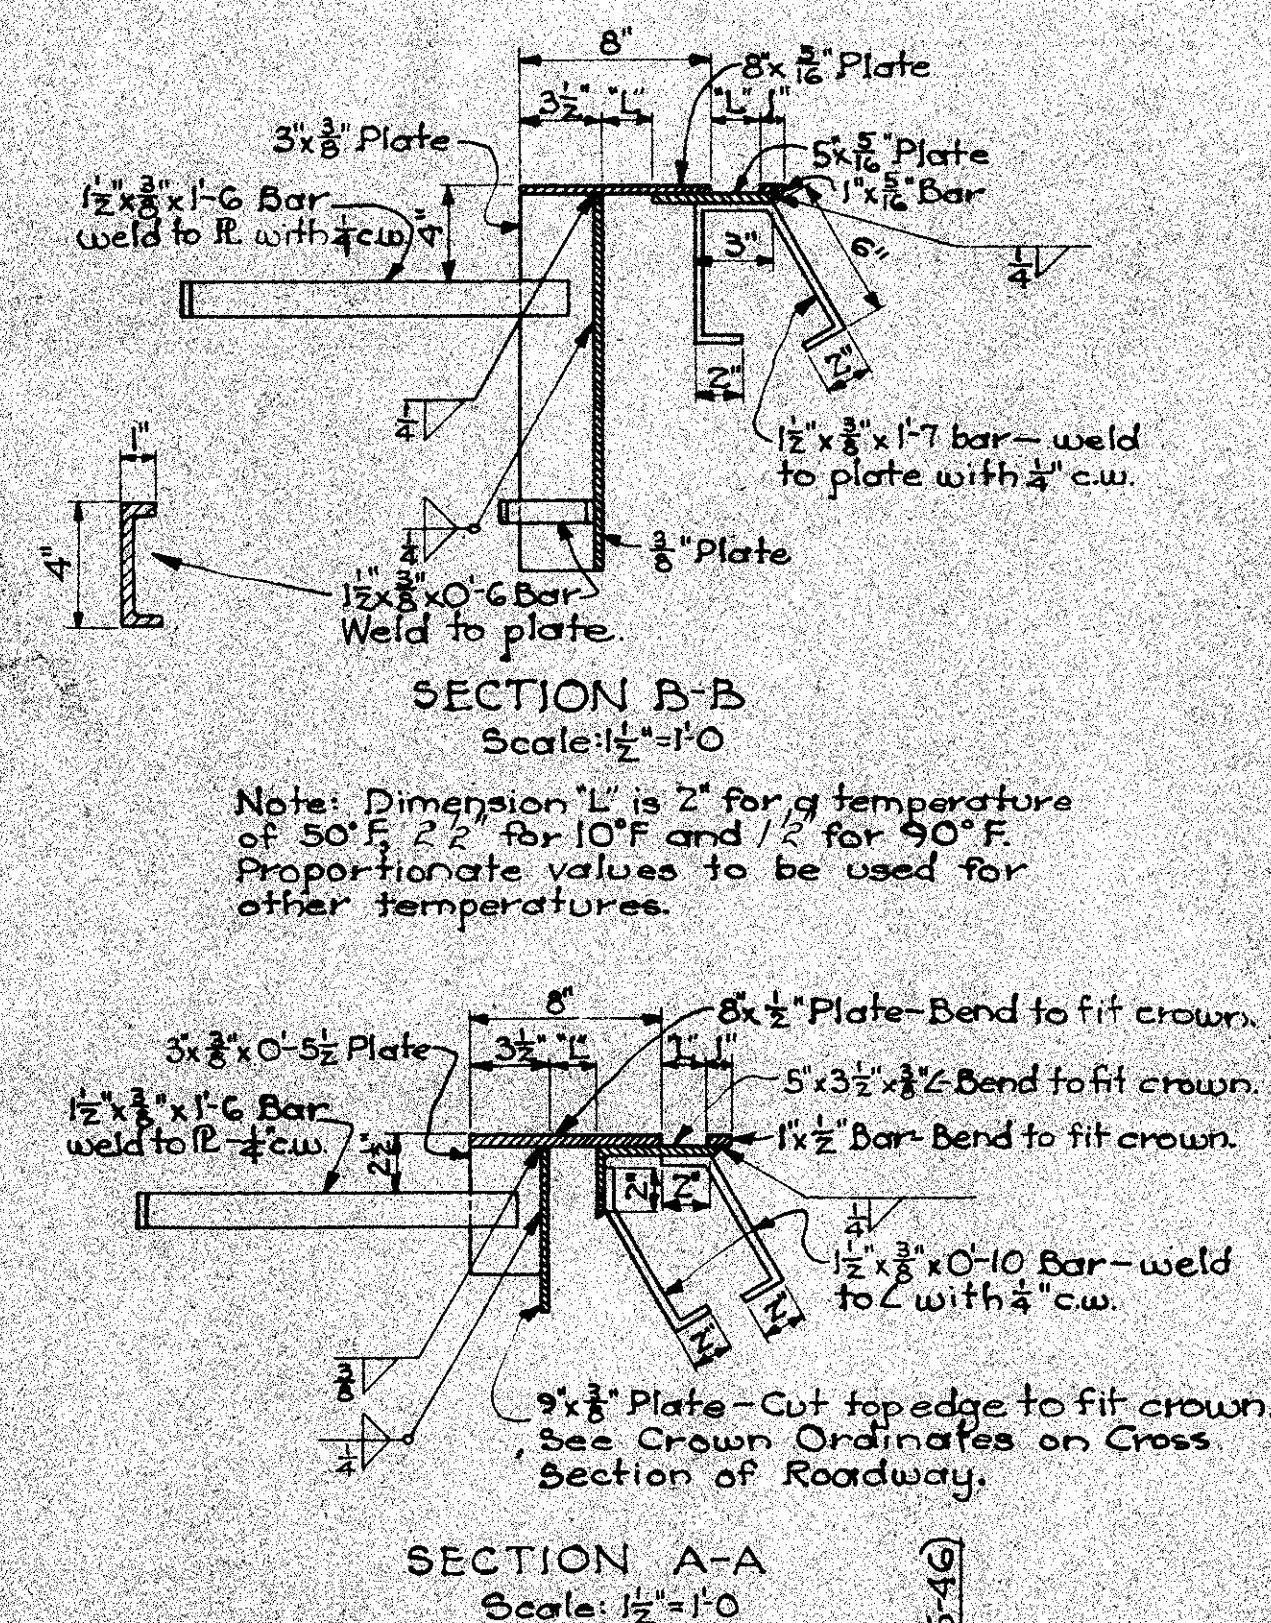 8"
8"x 5/16" Plate
3 1/2" "L" "L" 1"
3"x 3/8" Plate
5"x 5/16" Plate
1 1/2"x 3/8"x 1'-6 Bar
1"x 5/16" Bar
weld to PL with 1/4 c.w.
4"
3"
6"
1/4
2"
2"
1/4
1 1/2"x 3/8"x 1'-7 bar – weld
to plate with 1/4" c.w.
1"
4"
1/4
3/8" Plate
1 1/2"x 3/8"x 0'-6 Bar
Weld to plate.
SECTION B-B
Scale: 1 1/2"=1'-0
Note: Dimension "L" is 2" for a temperature
of 50°F, 2 1/2" for 10°F and 1 1/2" for 90°F.
Proportionate values to be used for
other temperatures.
8"
8"x 1/2" Plate-Bend to fit crown.
3"x 3/8"x 0'-5 1/2 Plate
3 1/2" "L" "L" 1"
5"x 3 1/2"x 3/8" ∠-Bend to fit crown.
1 1/2"x 3/8"x 1'-6 Bar
weld to PL - 1/4" c.w.
2 1/2"
1"x 1/2" Bar-Bend to fit crown.
2" 2"
1/4
1 1/2"x 3/8"x 0'-10 Bar – weld
to ∠ with 1/4" c.w.
2"
2"
3/8
1/4
9"x 3/8" Plate – Cut top edge to fit crown.
See Crown Ordinates on Cross
Section of Roadway.
SECTION A-A
Scale: 1 1/2"=1'-0